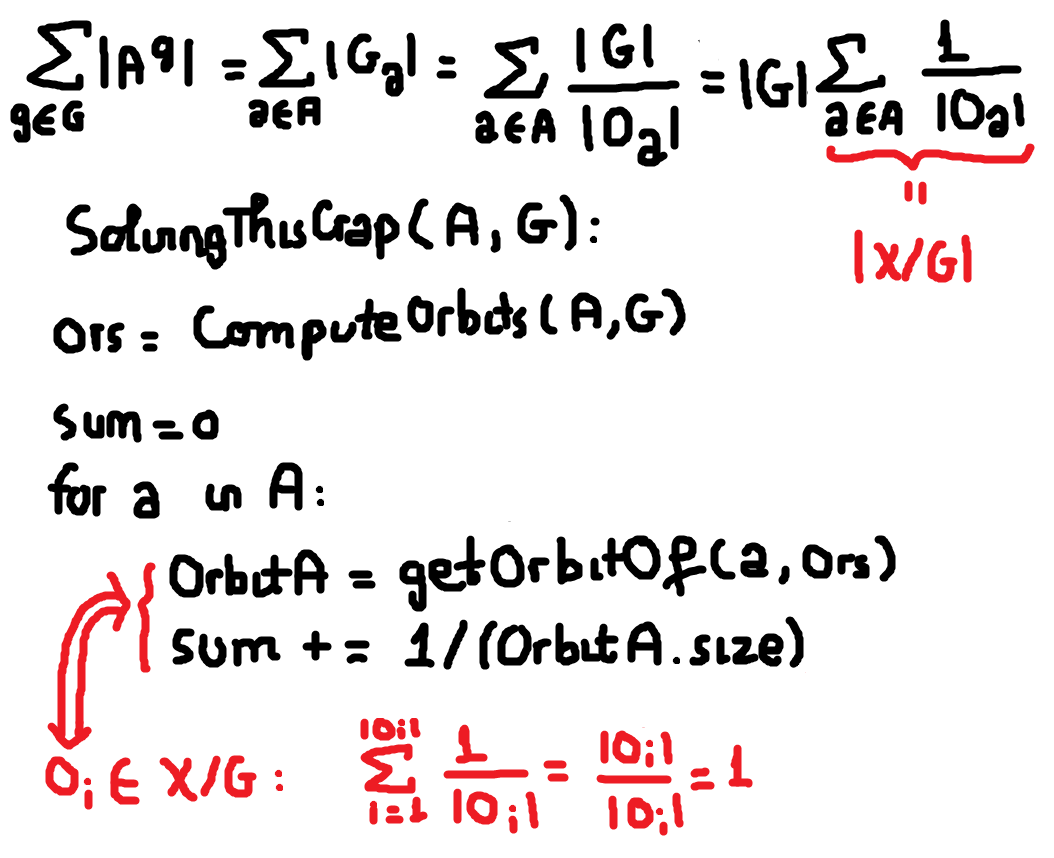 ∑_{g∈G} |A^g| = ∑_{a∈A} |G_a| = ∑_{a∈A} |G|/|O_a| = |G| ∑_{a∈A} 1/|O_a|
"
|X/G|
SolvingThisCrap(A, G):
ors = ComputeOrbits(A,G)
sum = 0
for a in A:
OrbitA = getOrbitOf(a, ors)
sum += 1/(OrbitA.size)
O_i ∈ X/G: ∑_{i=1}^{|O_i|} 1/|O_i| = |O_i|/|O_i| = 1